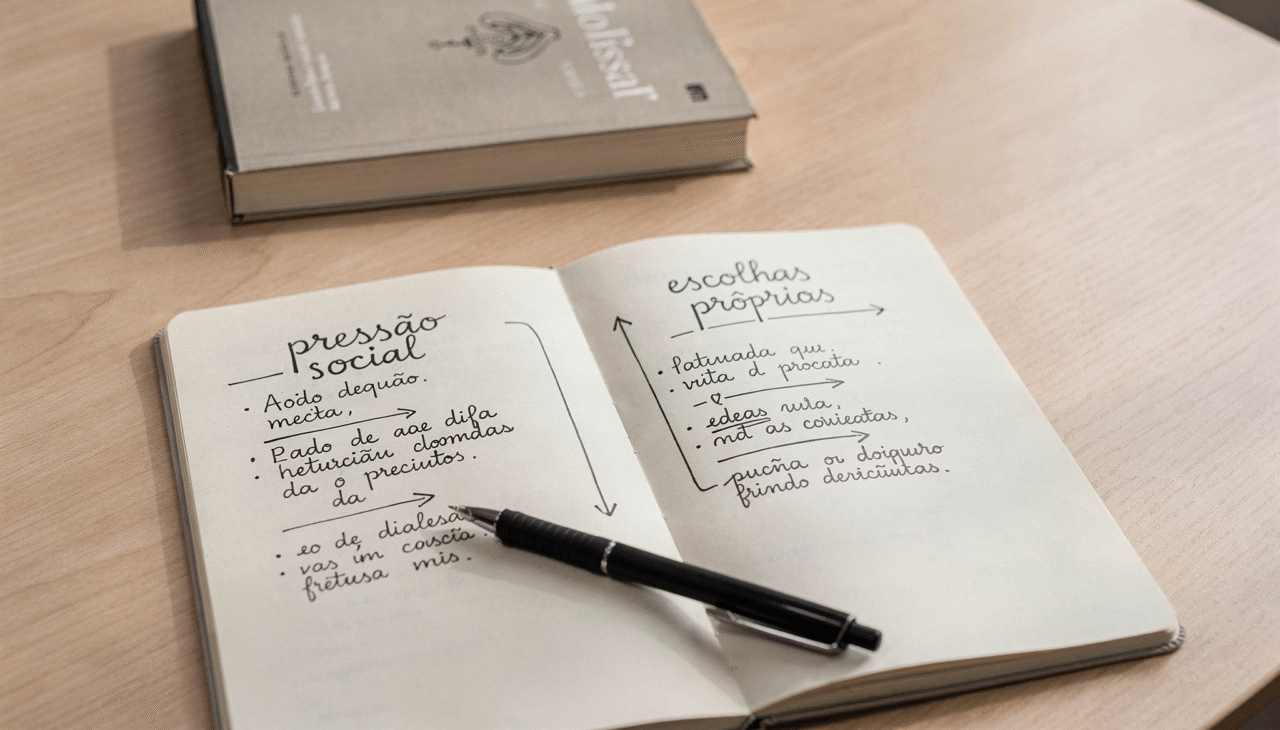 pressão
social
· Aodo dequão.
mecta,
· Pado de aae difa
· heturciãu doomdas
da o preciutos.
da
· eo de dialesa
· vas im coscia.
fretusa mis.
escolhas
prôprias
· Patunada qu.
· vuta d procata .
· edeas rula,
· md as covieatas,
pucña or doiquro
frindo dericũutas.